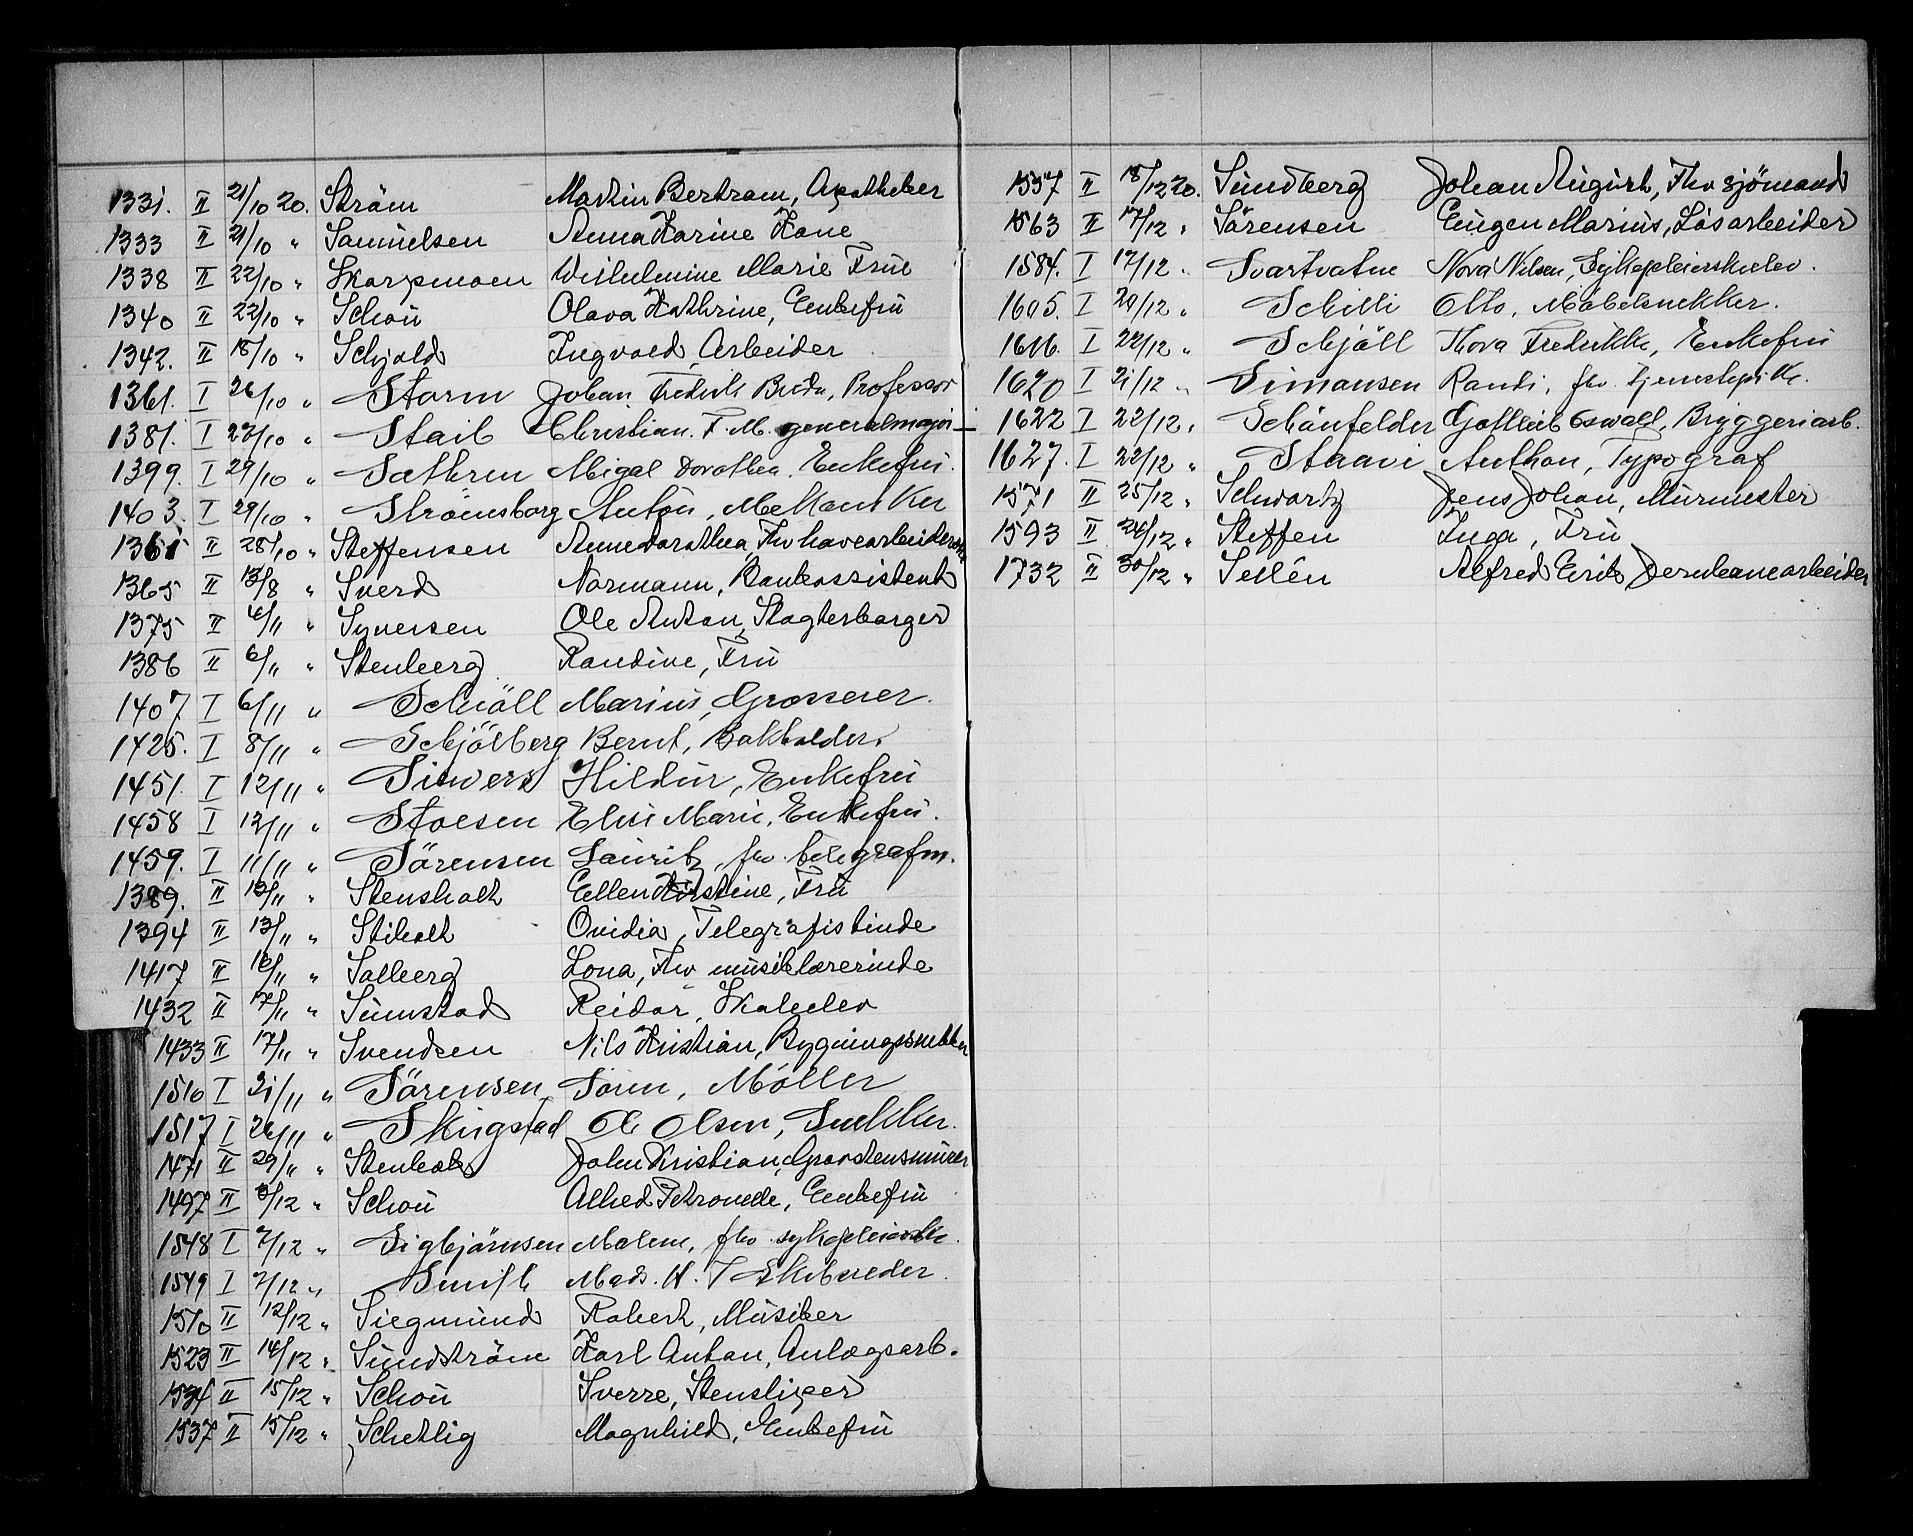 1331. II 21/10 20. Ström Martin Bertram, Apotheker
1333 II 21/10 " Samuelsen Anna Karine Kone
1338 II 22/10 " Skarpmoen Wilhelmine Marie Frue
1340 II 22/10 " Schou Olava Kathrine, Enkefru
1342. II 18/10 " Schjold Ingvald, Arbeider
1361. I 26/10 " Storm Johan Fredrik Breda, Professor
1381. I 23/10 " Staib Christian. F. M. generalmajor
1399. I 29/10 " Sæthren Abigal Dorothea. Enkefru.
1403. I 29/10 " Strömsborg Anton, Mekaniker
1361 II 28/10 " Steffensen Anne Dorothea, Fhv havearbeiderske
1365 II 13/8 " Sverd Normann, Bankassistent
1375 II 4/11 " Syversen Ole Anton, Slagterborger
1386 II 6/11 " Stenberg Randine, Fru
1407 I 6/11 " Schiöll Marius, Grosserer.
1425. I 8/11 " Schjölberg Bernt, Bokholder.
1451. I 12/11 " Siewers Hildur, Enkefru
1458 I 12/11 " Stoesen Elise Marie, Enkefru.
1459. I 11/11 " Sörensen Lauritz, fhv. telegrafm.
1389. II 13/11 " Stensholt Ellen Kirstine, Fru
1394 II 13/11 " Stiholt Ovidia, Telegrafistinde
1417 II 16/11 " Solberg Lona, Fhv musiklærerinde
1432 II 17/11 " Sumstad Reidar, Skoleelev
1433 II 17/11 " Svendsen Nils Kristian, Bygningssnekker
1510 I 21/11 " Sörensen Sörin, Möller
1517 I 26/11 " Skingstad Ole Olsen, Snekker.
1471 II 29/11 " Stenholt John Kristian, Graastensmurer
1497 II 3/12 " Schou Alhed Petronelle, Enkefru
1548 I 7/12 " Sigbjörnsen Malene, fhv. sykepleierske.
1549 I 7/12 " Smith Mads. H. T Skibsreder.
1510 II 12/12 " Siegmund Robert, Musiker
1523 II 14/12 " Sundström Karl Anton, Anlægsarb.
1534 II 15/12 " Schou Sverre, Stensliper
1537 II 15/12 " Schetlig Magnhild, Enkefru
1557 II 18/12 20. Sundberg Johan August, Fhv sjömand
1563 II 17/12 " Sörensen Eugen Marius, Lösarbeider
1584. I 17/12 " Svartvatne Nora Nilsen, Sykepleierskeelev.
1605. I 20/12 " Schilli Otto, Möbelsnekker.
1616. I 22/12 " Schjöll Thora Fredrikke, Enkefru
1620 I 21/12 " Simonsen Randi, fhv. tjenestepike.
1622 I 22/12 " Schönfelder Gottlieb Oswald, Bryggeriarb.
1627. I 22/12 " Staavi Anthon, Typograf
1571 II 25/12 " Schwartz Jens Johan, Murmester
1593 II 26/12 " Steffen Inga, Fru
1732 II 30/12 " Sellén Alfred Erik, Jernbanearbeider